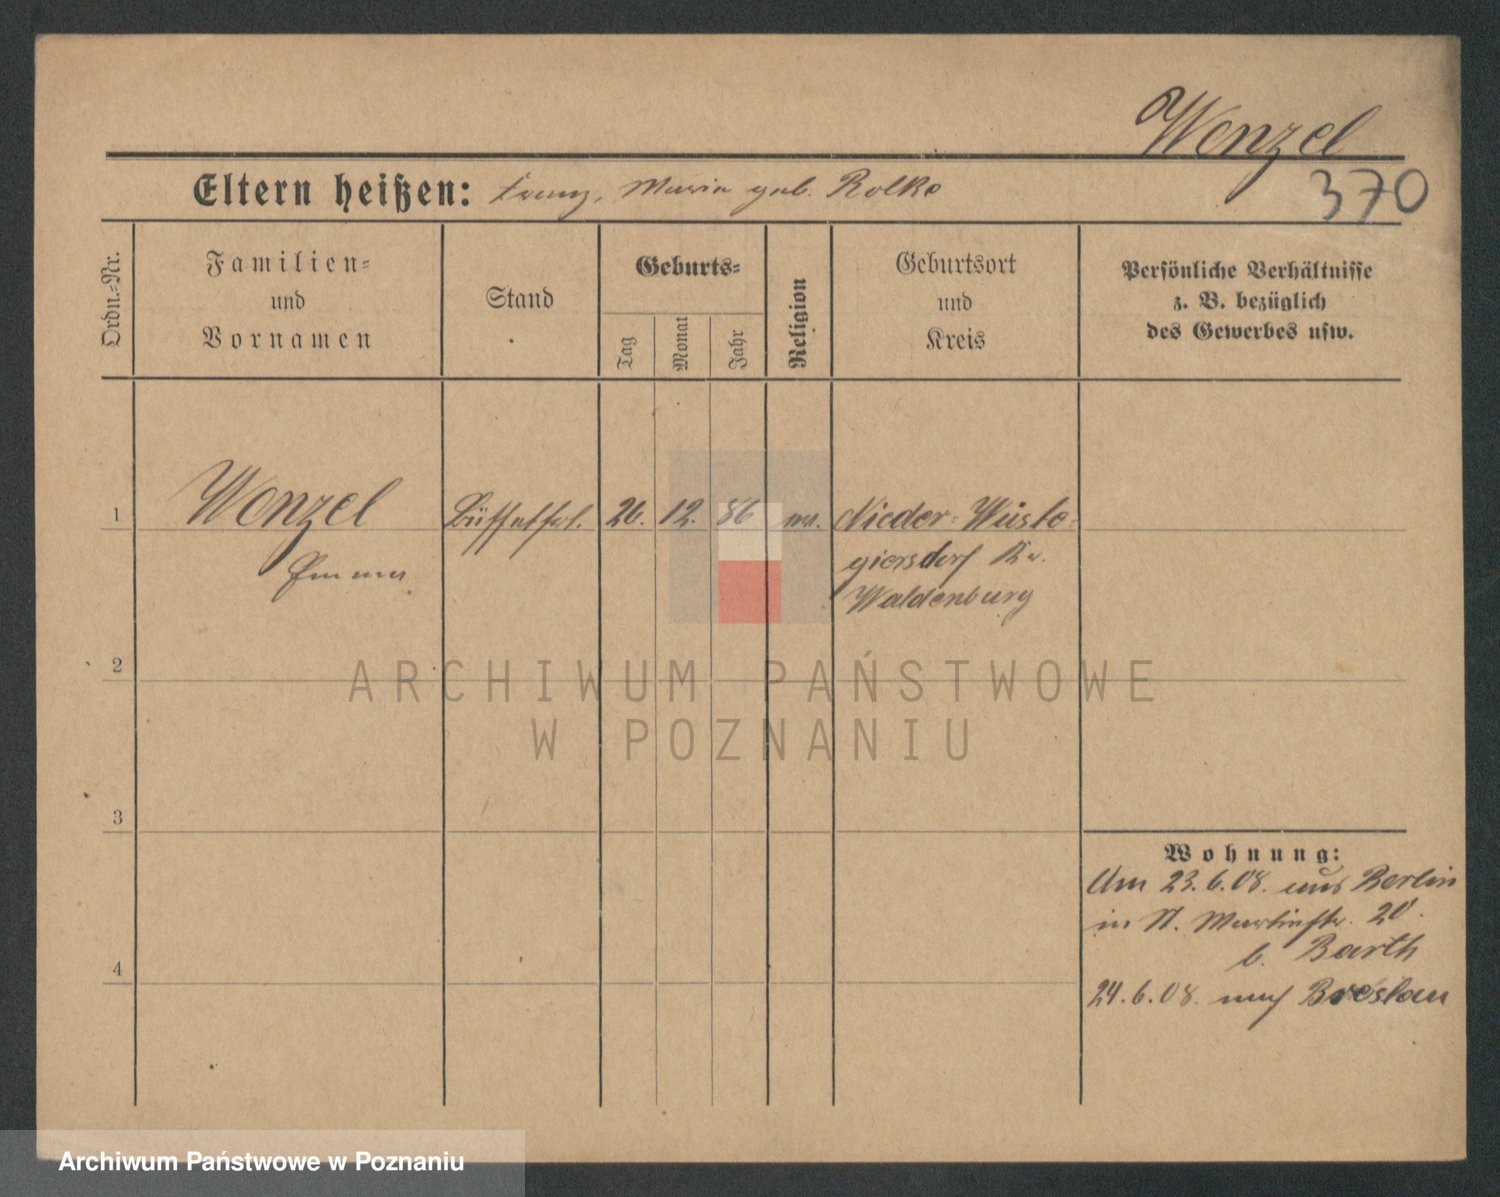 Wenzel
370
Eltern heißen: Franz, Maria geb. Rolke
Ordn.-Nr.
Familien-
und
Vornamen
Stand
Geburts-
Tag
Monat
Jahr
Religion
Geburtsort
und
Kreis
Persönliche Verhältnisse
z. B. bezüglich
des Gewerbes usw.
1
Wenzel
Emma
Büffetfrl.
26. 12. 86
Nieder-Wüste-
giersdorf Kr.
Waldenburg
2
3
4
Wohnung:
Am 23.6.08. aus Berlin
in St. Martinstr. 20.
b. Barth
24.6.08. nach Breslau
ARCHIWUM PAŃSTWOWE
W POZNANIU
Archiwum Państwowe w Poznaniu